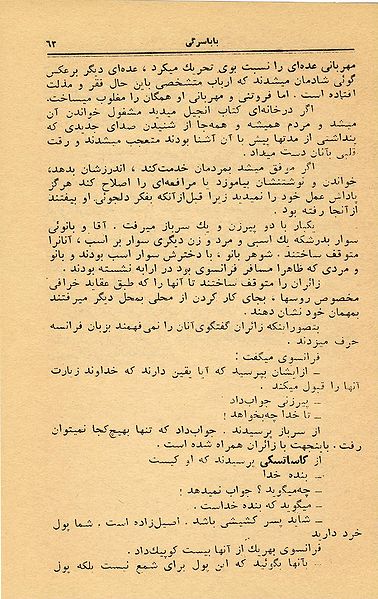 باباسرگی ۶۳
مهربانی عده‌ای را نسبت بوی تحریك میکرد ، عده‌ای دیگر برعکس
گوئی شادمان میشدند که ارباب متشخصی باین حال فقر و مذلت
افتاده است . اما فروتنی و مهربانی او همگان را مغلوب میساخت.
اگر درخانه‌ای کتاب انجیل میدید مشغول خواندن آن
میشد و مردم همیشه و همه‌جا از شنیدن صدای جدیدی که
پنداشتی از مدتها پیش با آن آشنا بودند متعجب میشدند و رقت
قلبی بآنان دست میداد .
اگر موفق میشد بمردمان خدمت‌کند ، اندرزشان بدهد،
خواندن و نوشتنشان بیاموزد یا مرافعه‌ای را اصلاح کند هرگز
پاداش عمل خود را نمیدید زیرا قبل‌ازآنکه بفکر دلجوئی او بیفتند
ازآنجا رفته بود .
یکبار با دو پیرزن و یك سرباز میرفت . آقا و بانوئی
سوار بدرشکه یك اسبی و مرد و زن دیگری سوار بر اسب ، آنانرا
متوقف ساختند . شوهر بانو ، با دخترش سوار اسب بودند و بانو
و مردی که ظاهرا مسافر فرانسوی بود در ارابه نشسته بودند .
زائران را متوقف ساختند تا آنها را که طبق عقاید خرافی
مخصوص روسها ، بجای کار کردن از محلی بمحل دیگر میرفتند
بمهمان خود نشان دهند .
بتصوراینکه زائران گفتگوی‌آنان را نمی‌فهمند بزبان فرانسه
حرف میزدند .
فرانسوی میگفت :
ـ ازایشان بپرسید که آیا یقین دارند که خداوند زیارت
آنها را قبول میکند .
ـ پیرزنی جواب‌داد
ـ تا خدا چه‌بخواهد !
از سرباز پرسیدند . جواب‌داد که تنها بهیچ‌کجا نمیتوان
رفت . باینجهت با زائران همراه شده است .
از کاساتسکی پرسیدند که او کیست
ـ بنده خدا
ـ چه‌میگوید ؟ جواب نمیدهد !
ـ میگوید که بنده خداست .
ـ شاید پسر کشیشی باشد . اصیل‌زاده است . شما پول
خرد دارید
فرانسوی بهریك از آنها بیست کوپیك‌داد .
ـ بآنها بگوئید که این پول برای شمع نیست بلکه پول